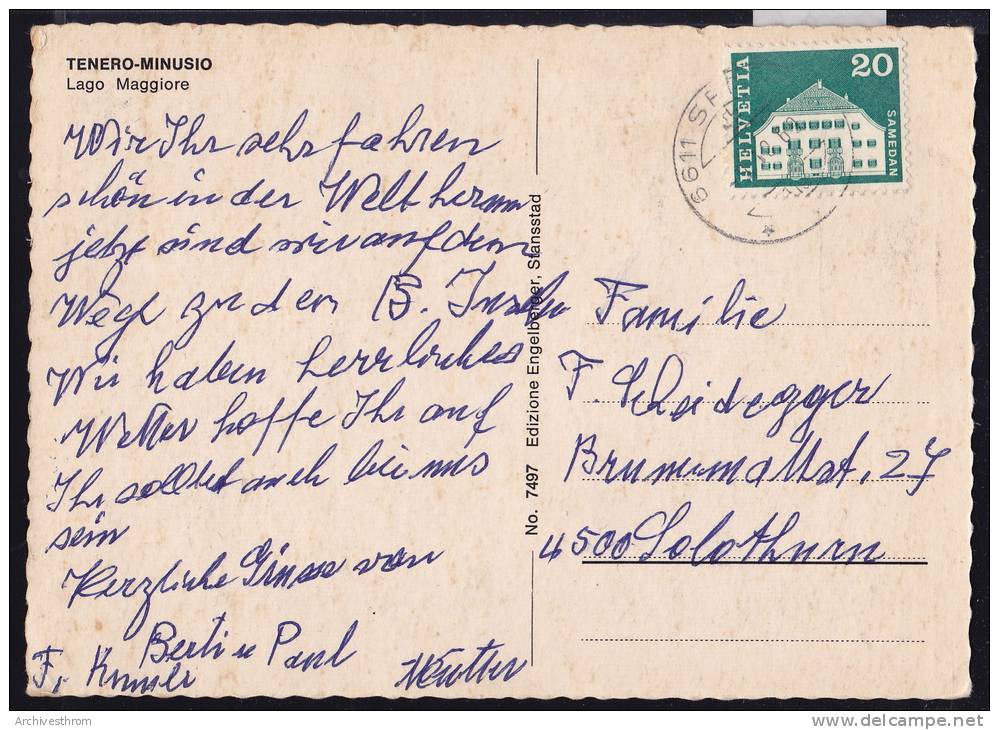 TENERO-MINUSIO
Lago Maggiore
Wir Ihr sehr fahren
schön in der Welt herum
jetzt sind wir auf dem
Wege zu den B. Inseln
Wir haben herrliches
Wetter hoffe Ihr auf
Ihr solltet auch bei uns
sein
Herzliche Grüsse von
Berti u Paul
F.
No. 7497 Edizione Engelberger, Stansstad
HELVETIA
20
SAMEDAN
6611
Familie
F. Scheidegger
Brunnmattst. 27
4500 Solothurn
Archivesthrom
delcampe.net